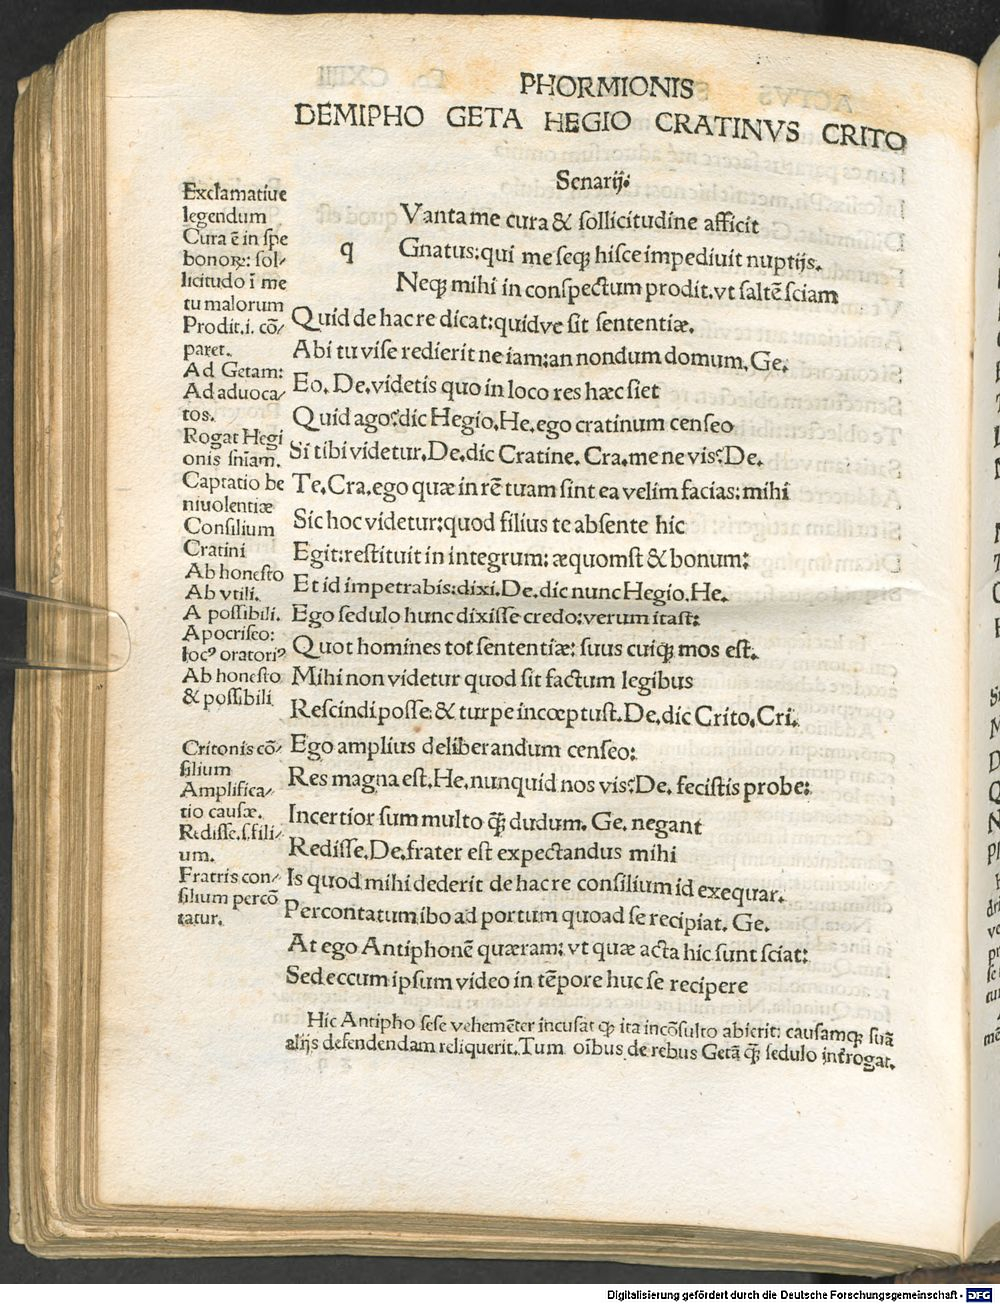 PHORMIONIS
DEMIPHO GETA HEGIO CRATINVS CRITO
Senarij:
Exclamatiue
legendum
Cura ē in spe
bonoꝝ: sol/
licitudo ī me
tu malorum
Prodit.i. cō/
paret.
Ad Getam:
Ad aduoca/
tos.
Rogat Hegi
onis sn̄iam.
Captatio be
niuolentiæ
Consilium
Cratini
Ab honesto
Ab vtili.
A possibili.
Apocriseo:
locꝰ oratoriꝰ
Ab honesto
& possibili
Critonis cō/
silium
Amplifica/
tio causæ.
Redisse.s.fili/
um.
Fratris con/
silium percō
tatur.
q
Vanta me cura & sollicitudine afficit
Gnatus: qui me seqꝫ hisce impediuit nuptijs.
Neqꝫ mihi in conspectum prodit.vt saltē sciam
Quid de hac re dicat: quidve sit sententiæ.
Abi tu vise redierit ne iam: an nondum domum. Ge.
Eo. De. videtis quo in loco res hæc siet
Quid ago: dic Hegio. He. ego cratinum censeo
Si tibi videtur. De. dic Cratine. Cra. me ne vis: De.
Te. Cra. ego quæ in rē tuam sint ea velim facias: mihi
Sic hoc videtur: quod filius te absente hic
Egit: restituit in integrum: æquomst & bonum:
Et id impetrabis: dixi. De. dic nunc Hegio. He.
Ego sedulo hunc dixisse credo: verum itast:
Quot homines tot sententiæ: suus cuiqꝫ mos est.
Mihi non videtur quod sit factum legibus
Rescindi posse: & turpe incœptust. De. dic Crito. Cri.
Ego amplius deliberandum censeo:
Res magna est. He. nunquid nos vis: De. fecistis probe:
Incertior sum multo qꝫ̄ dudum. Ge. negant
Redisse. De. frater est expectandus mihi
Is quod mihi dederit de hac re consilium id exequar.
Percontatum ibo ad portum quoad se recipiat. Ge.
At ego Antiphonē quæram: vt quæ acta hic sunt sciat:
Sed eccum ipsum video in tēpore huc se recipere
Hic Antipho sese vehemēter incusat qꝫ ita incōsulto abierit: causamqꝫ suā
alijs defendendam reliquerit. Tum oībus de rebus Getā qꝫ̄ sedulo interrogat.
Digitalisierung gefördert durch die Deutsche Forschungsgemeinschaft - DFG